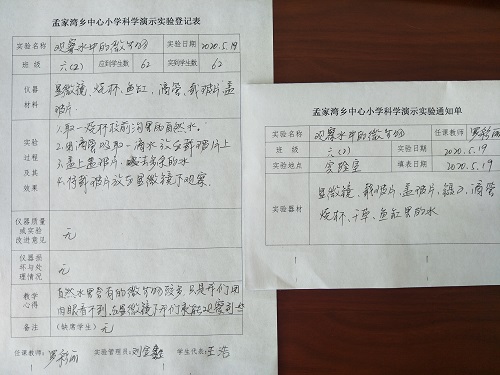 孟家湾乡中心小学科学演示实验登记表
实验名称 观察水中的微生物 实验日期 2020.5.19
班级 六(2) 应到学生数 62 实到学生数 62
仪器材料 显微镜、烧杯、鱼缸、滴管、载玻片、盖玻片.
实验过程及其效果
1.取一烧杯校前沟里的自然水。
2.用滴管吸取一滴水放在载玻片上
3.盖上盖玻片,吸去多余的水
4.将载玻片放在显微镜下观察.
仪器质量或实验改进意见 无
仪器损坏与处理情况 无
教学心得
自然水里含有的微生物较多,只是我们用
肉眼看不到,在显微镜下我们就能观察到些
备注 (缺席学生) 无
任课教师: 实验管理员: 学生代表: 王浩
孟家湾乡中心小学科学演示实验通知单
实验名称 观察水中的微生物 任课教师
班级 六(2) 实验日期 2020.5.19
实验地点 实验室 填表日期 2020.5.19
实验器材
显微镜、载玻片、盖玻片、镊子、滴管
烧杯、干草、鱼缸里的水